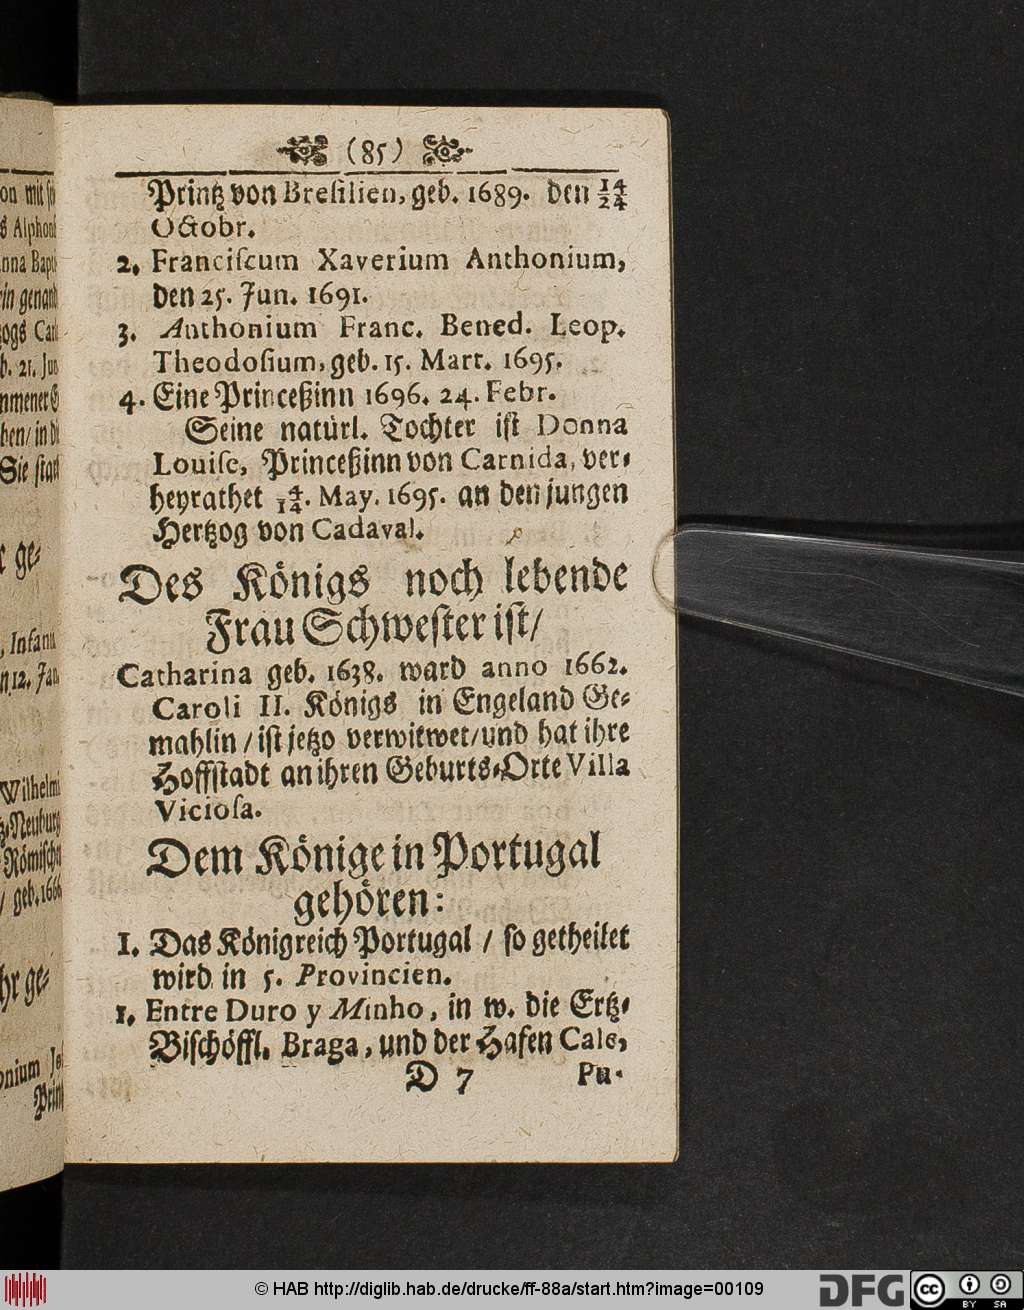 (85)
Printz von Bresilien, geb. 1689. den 14/24
Octobr.
2. Franciscum Xaverium Anthonium,
den 25. Jun. 1691.
3. Anthonium Franc. Bened. Leop.
Theodosium, geb. 15. Mart. 1695.
4. Eine Princeßinn 1696. 24. Febr.
Seine natürl. Tochter ist Donna
Louise, Princeßinn von Carnida, ver-
heyrathet 4/14. May. 1695. an den jungen
Hertzog von Cadaval.
Des Königs noch lebende
Frau Schwester ist/
Catharina geb. 1638. ward anno 1662.
Caroli II. Königs in Engeland Ge-
mahlin / ist jetzo verwitwet/und hat ihre
Hoffstadt an ihren Geburts-Orte Villa
Viciosa.
Dem Könige in Portugal
gehören:
I. Das Königreich Portugal / so getheilet
wird in 5. Provincien.
1. Entre Duro y Minho, in w. die Ertz-
Bischöffl. Braga, und der Hafen Cale,
D 7 Pu-
© HAB http://diglib.hab.de/drucke/ff-88a/start.htm?image=00109
DFG
cc BY SA